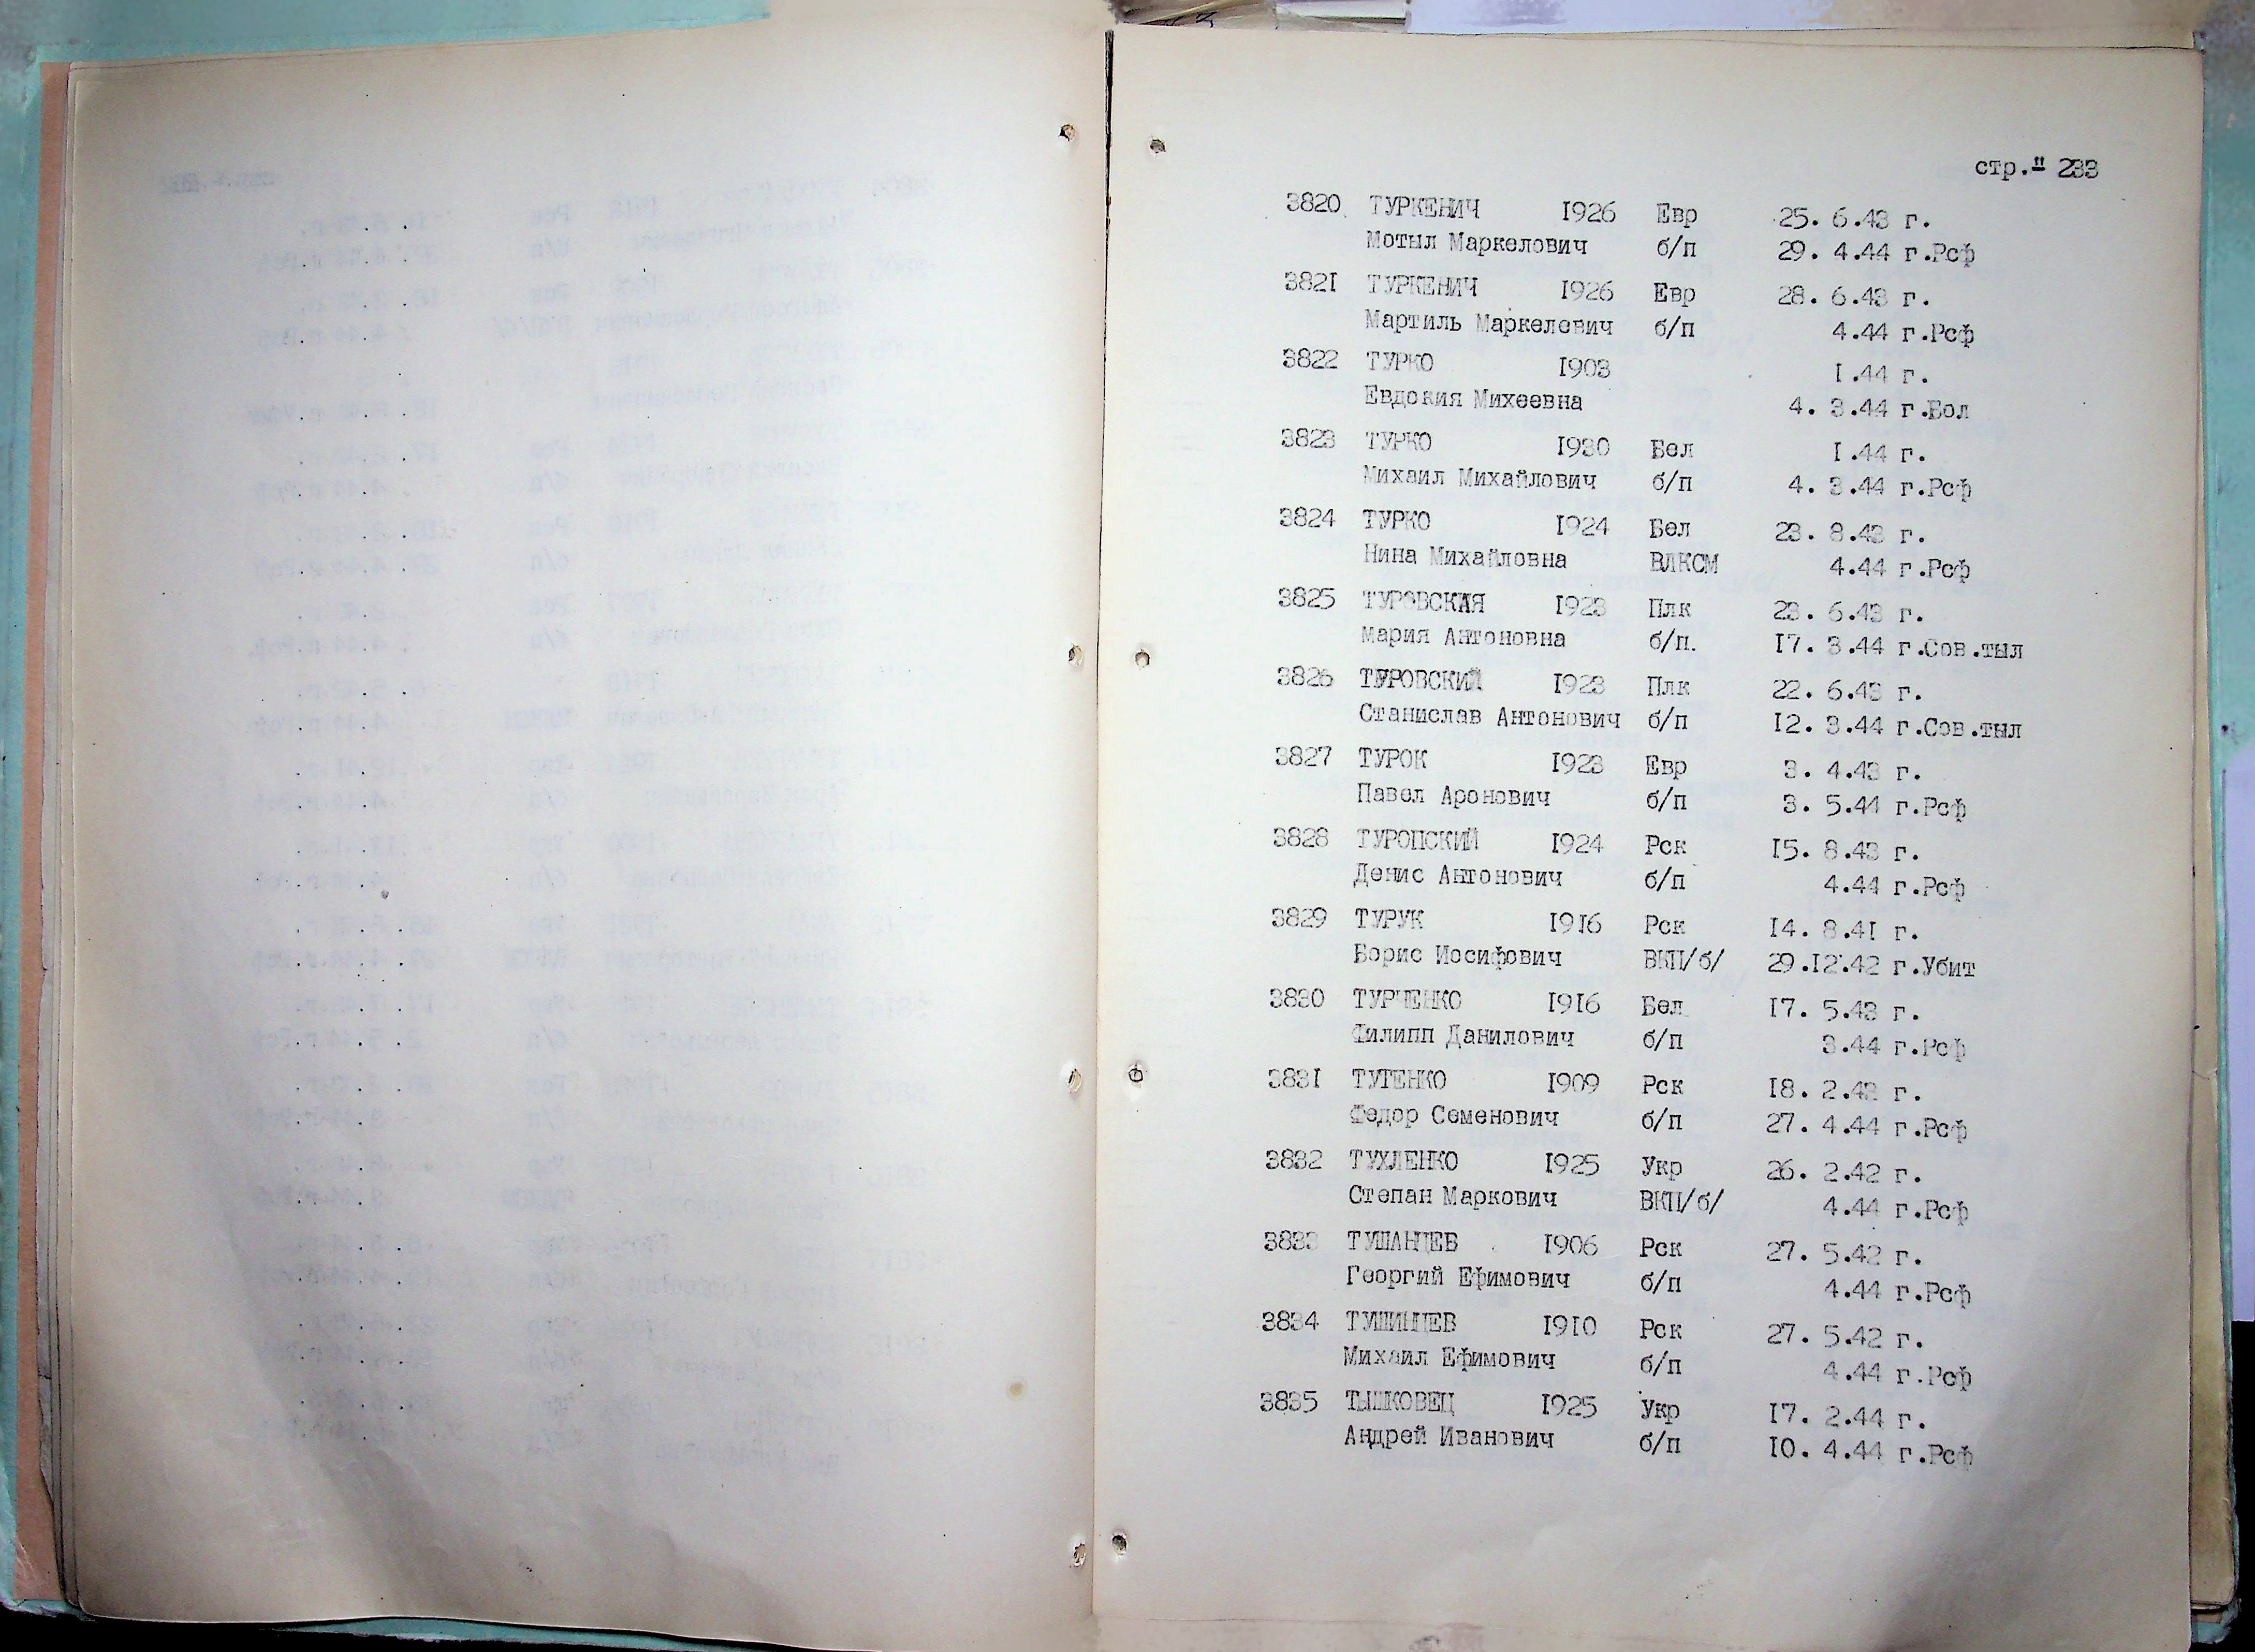 стр." 233
3820 ТУРКЕНИЧ 1926 Евр 25. 6.43 г.
Мотыл Маркелович б/п 29. 4.44 г.Рсф
3821 ТУРКЕНИЧ 1926 Евр 28. 6.43 г.
Мартиль Маркелевич б/п 4.44 г.Рсф
3822 ТУРКО 1903 1.44 г.
Евдокия Михеевна 4. 3.44 г.Бол
3823 ТУРКО 1930 Бел 1.44 г.
Михаил Михайлович б/п 4. 3.44 г.Рсф
3824 ТУРКО 1924 Бел 23. 8.43 г.
Нина Михайловна ВЛКСМ 4.44 г.Рсф
3825 ТУРОВСКАЯ 1923 Плк 23. 6.43 г.
Мария Антоновна б/п. 17. 3.44 г.Сов.тыл
3826 ТУРОВСКИЙ 1923 Плк 22. 6.43 г.
Станислав Антонович б/п 12. 3.44 г.Сов.тыл
3827 ТУРОК 1923 Евр 3. 4.43 г.
Павел Аронович б/п 3. 5.44 г.Рсф
3828 ТУРОПСКИЙ 1924 Рск 15. 8.43 г.
Денис Антонович б/п 4.44 г.Рсф
3829 ТУРУК 1916 Рск 14. 8.41 г.
Борис Иосифович ВКП/б/ 29.12.42 г.Убит
3830 ТУРЧЕНКО 1916 Бел 17. 5.43 г.
Филипп Данилович б/п 3.44 г.Рсф
3831 ТУТЕНКО 1909 Рск 18. 2.43 г.
Федор Семенович б/п 27. 4.44 г.Рсф
3832 ТУХЛЕНКО 1925 Укр 26. 2.42 г.
Степан Маркович ВКП/б/ 4.44 г.Рсф
3833 ТУШАНЦЕВ 1906 Рск 27. 5.42 г.
Георгий Ефимович б/п 4.44 г.Рсф
3834 ТУШИНЦЕВ 1910 Рск 27. 5.42 г.
Михаил Ефимович б/п 4.44 г.Рсф
3835 ТЫШКОВЕЦ 1925 Укр 17. 2.44 г.
Андрей Иванович б/п 10. 4.44 г.Рсф